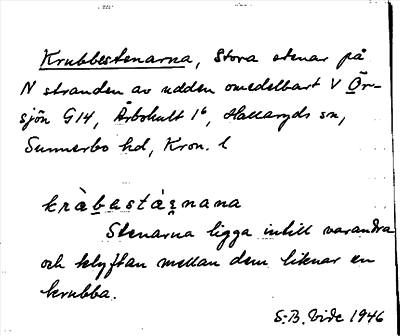 Krubbestenarna, Stora stenar på
N stranden av udden omedelbart V Ör-
sjön G14, Årbohult 1⁶, Hallaryds sn,
Sunnerbo hd, Kron. l
kràbestá̱ṇnana
Stenarna ligga intill varandra
och klyftan mellan dem liknar en
krubba.
S:B. Vide 1946